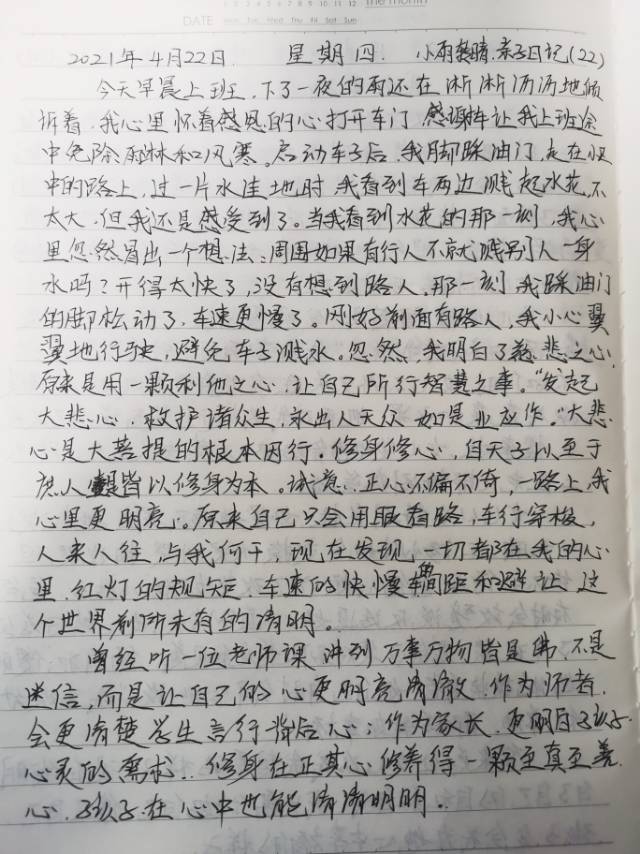 DATE Mon Tue Wed Thu Fri Sat Sun
2021年4月22日. 星期四. 小雨转晴.亲子日记(22)
今天早晨上班,下了一夜的雨还在淅淅沥沥地倾
拆着.我心里怀着感恩的心打开车门.感谢车让我上班途
中免除雨淋和风寒。启动车子后,我脚踩油门,走在
中的路上,过一片水洼地时,我看到车两边溅起水花,不
太大,但我还是感受到了。当我看到水花的那一刻,我心
里忽然冒出一个想法:周围如果有行人不就溅别人一身
水吗?开得太快了,没有想到路人,那一刻,我踩油门
的脚松动了,车速更慢了。刚好前面有路人,我小心翼
翼地行驶,避免车子溅水。忽然,我明白了慈悲之心,
原来是用一颗利他之心,让自己所行智慧之事。“发起
大悲心,救护诸众生,永出人天众,如是业应作。”大悲
心是大菩提的根本因行。修身修心,自天子以至于
庶人皆以修身为本。诚意、正心不偏不倚,一路上,我
心里更明亮。原来自己只会用眼看路,车行穿梭,
人来人往,与我何干,现在发现,一切都在我的心
里,红灯的规矩,车速的快慢,车间距和避让,这
个世界前所未有的清明。
曾经听一位老师课,讲到万事万物皆是佛,不是
迷信,而是让自己的心更明亮清澈,作为师者,
会更清楚学生言行背后心;作为家长,更明白孩子
心灵的需求..修身在正其心,修养得一颗至真至善
心,孩子在心中也能清清明明。